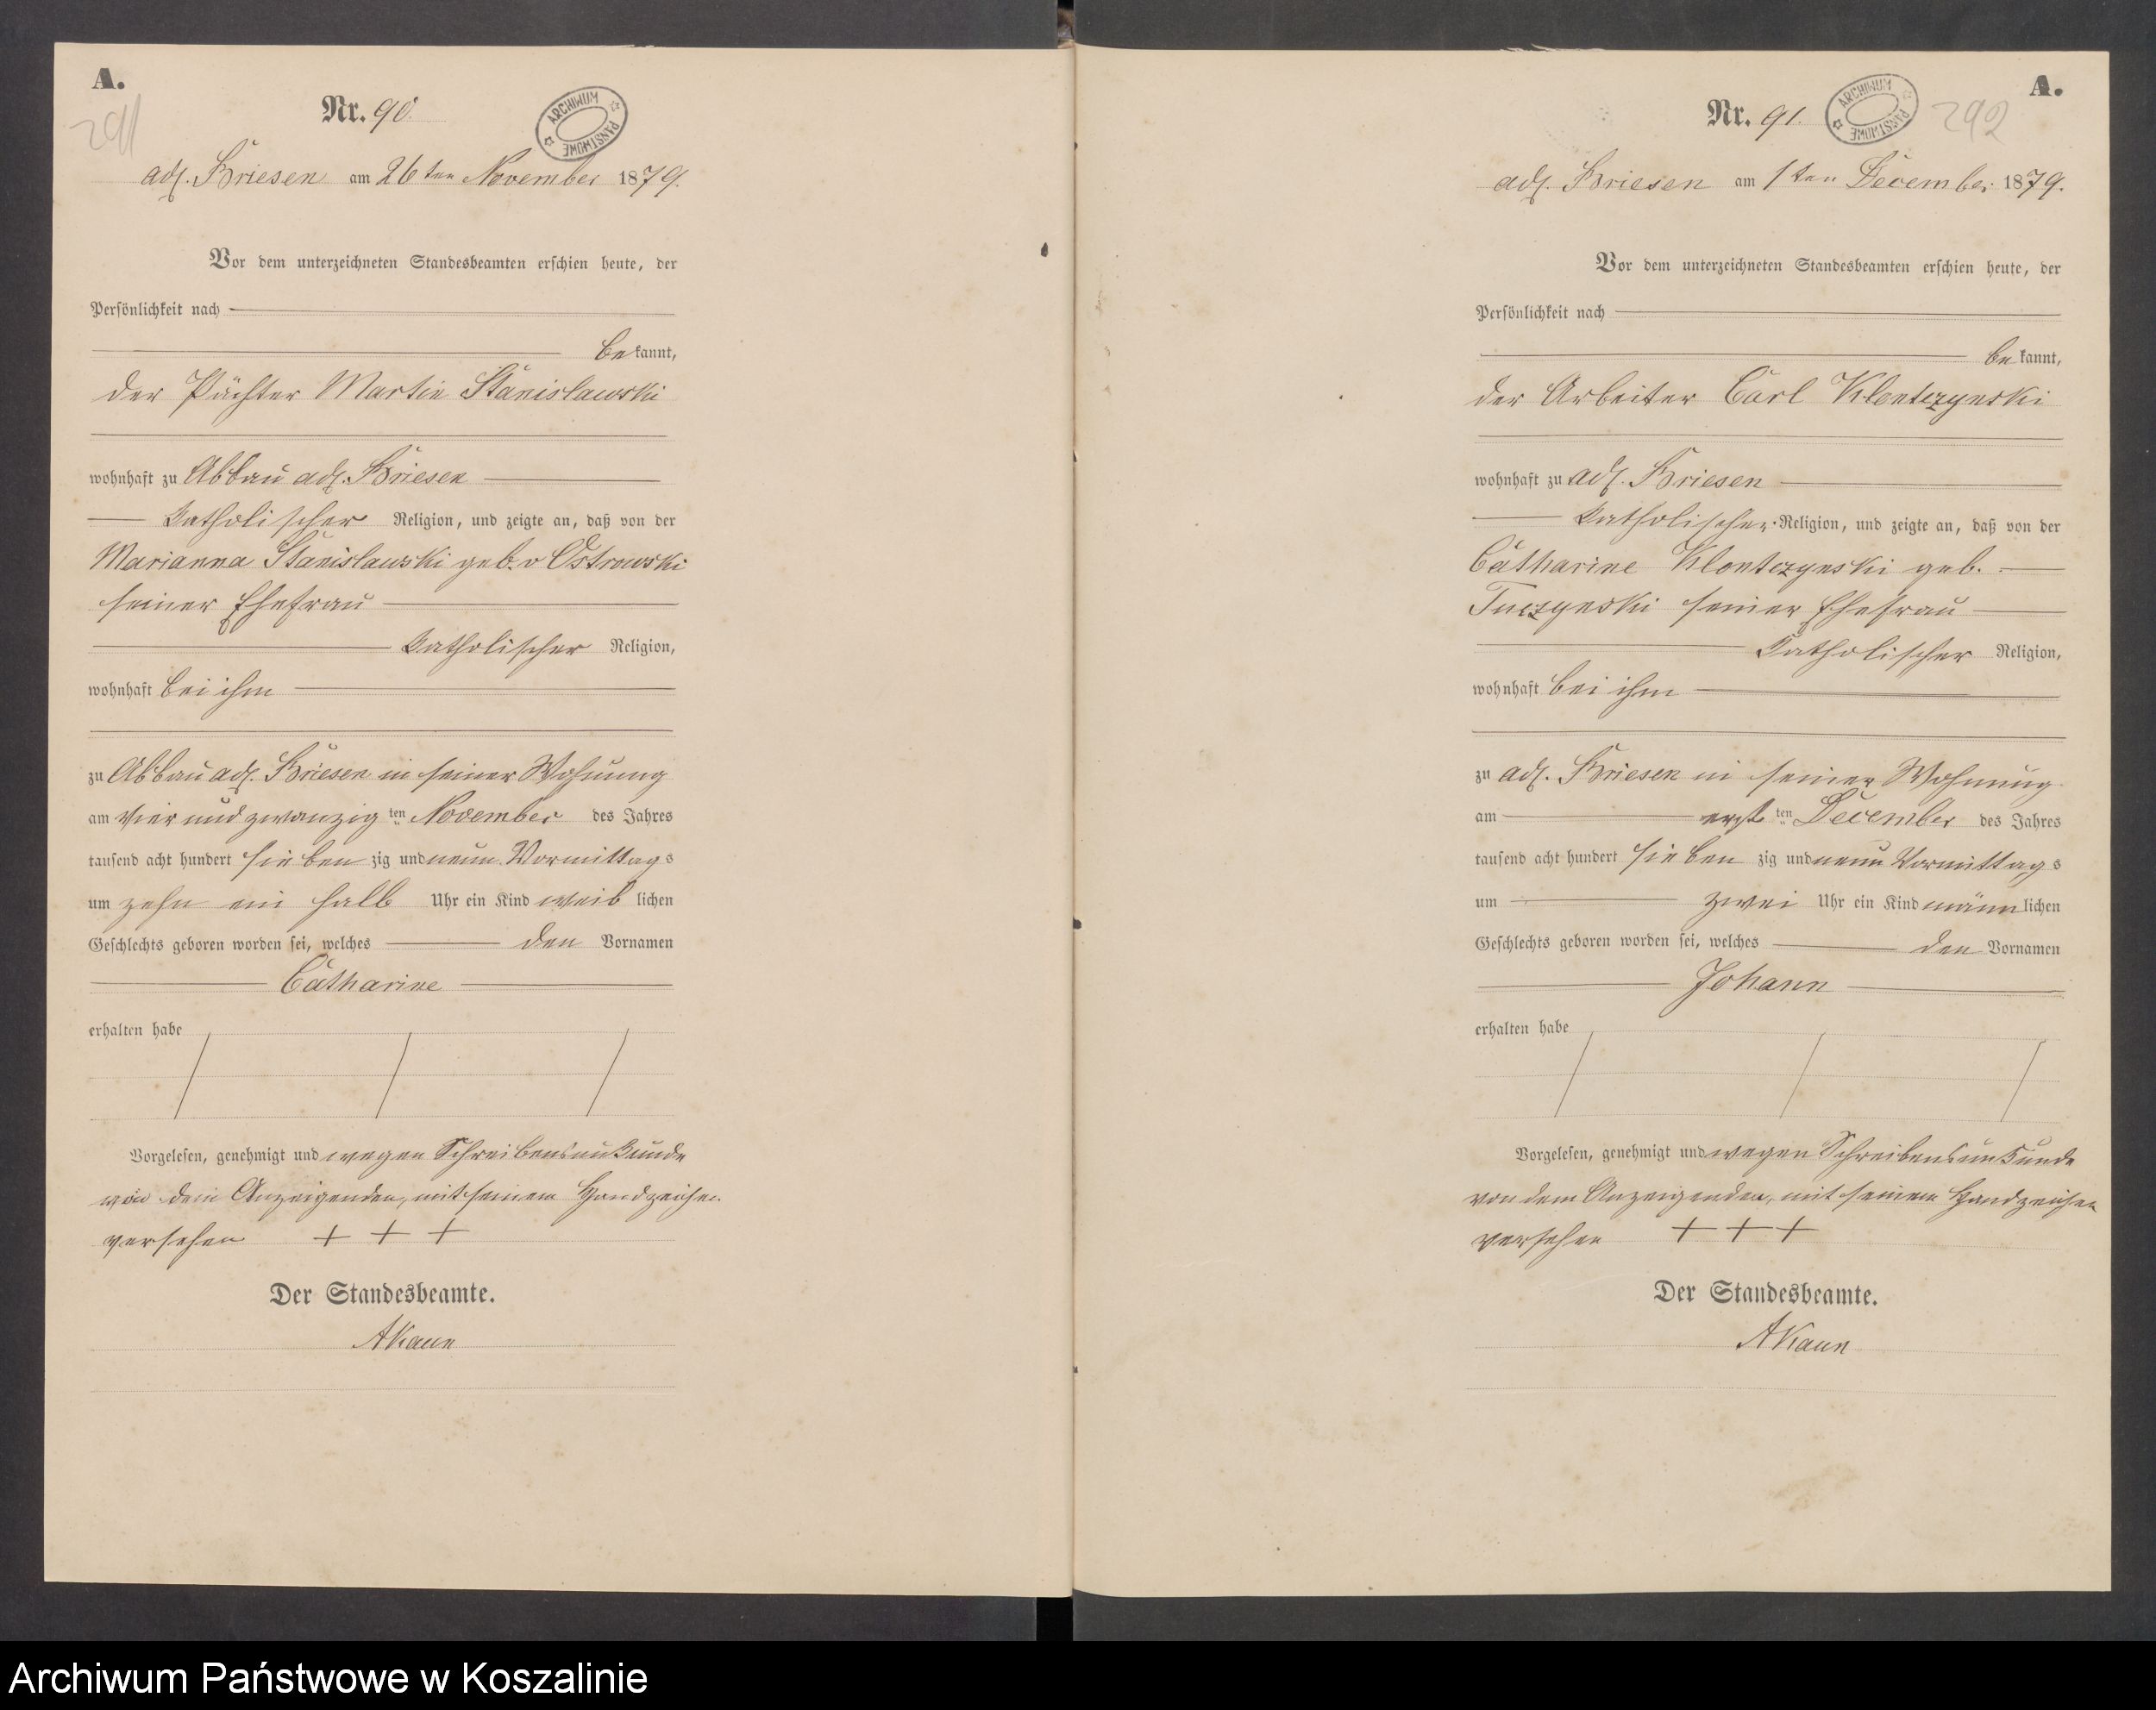 A.
291
Nr. 90.
ARCHIWUM PAŃSTWOWE
adl. Briesen am 26ten November 1879.
Vor dem unterzeichneten Standesbeamten erschien heute, der
Persönlichkeit nach
bekannt,
der Pächter Martin Stanislawski
wohnhaft zu Abbau adl. Briesen
katholischer Religion, und zeigte an, daß von der
Marianna Stanislawski geb. v Ostrowski
seiner Ehefrau
katholischer Religion,
wohnhaft bei ihm
zu Abbau adl. Briesen in seiner Wohnung
am vier und zwanzig ten November des Jahres
tausend acht hundert siebenzig und neun Vormittags
um zehn ein halb Uhr ein Kind weiblichen
Geschlechts geboren worden sei, welches den Vornamen
Catharine
erhalten habe
Vorgelesen, genehmigt und wegen Schreibensunkunde
von dem Anzeigenden, mit seinem Handzeichen
versehen + + +
Der Standesbeamte.
AKaun
A.
292
Nr. 91.
ARCHIWUM PAŃSTWOWE
adl. Briesen am 1ten December 1879.
Vor dem unterzeichneten Standesbeamten erschien heute, der
Persönlichkeit nach
bekannt,
der Arbeiter Carl Klontczynski
wohnhaft zu adl. Briesen
katholischer Religion, und zeigte an, daß von der
Catharine Klontczynski geb.
Tuczynski seiner Ehefrau
katholischer Religion,
wohnhaft bei ihm
zu adl. Briesen in seiner Wohnung
am erst ten December des Jahres
tausend acht hundert siebenzig und neun Vormittags
um zwei Uhr ein Kind männlichen
Geschlechts geboren worden sei, welches den Vornamen
Johann
erhalten habe
Vorgelesen, genehmigt und wegen Schreibensunkunde
von dem Anzeigenden, mit seinem Handzeichen
versehen + + +
Der Standesbeamte.
AKaun
Archiwum Państwowe w Koszalinie